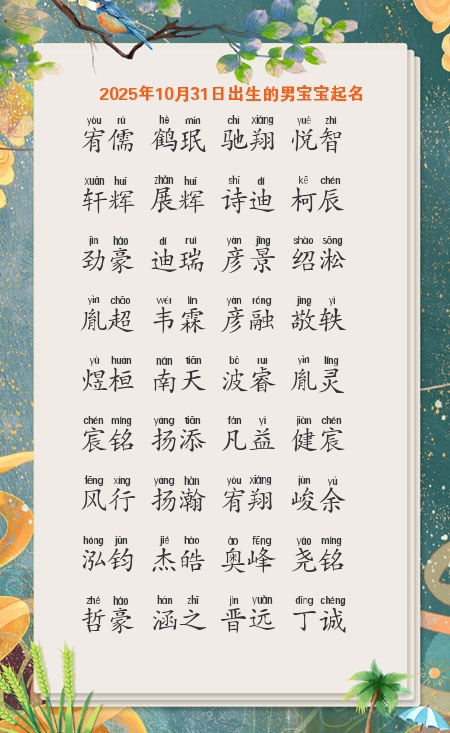 2025年10月31日出生的男宝宝起名
yòu rú hè mín chí xiáng yuè zhì
宥儒 鹤珉 驰翔 悦智
xuān huī zhǎn huī shī dí kē chén
轩辉 展辉 诗迪 柯辰
jìn háo dí ruì yàn jǐng shào sōng
劲豪 迪瑞 彦景 绍淞
yìn chāo wéi lín yàn róng jìng yì
胤超 韦霖 彦融 敬轶
yù huán nán tiān bō ruì yìn líng
煜桓 南天 波睿 胤灵
chén míng yáng tiān fán yì jiàn chén
宸铭 扬添 凡益 健宸
fēng xíng yáng hàn yòu xiáng jùn yú
风行 扬瀚 宥翔 峻余
hóng jūn jié hào ào fēng yáo míng
泓钧 杰皓 奥峰 尧铭
zhé háo hán zhī jìn yuǎn dīng chéng
哲豪 涵之 晋远 丁诚